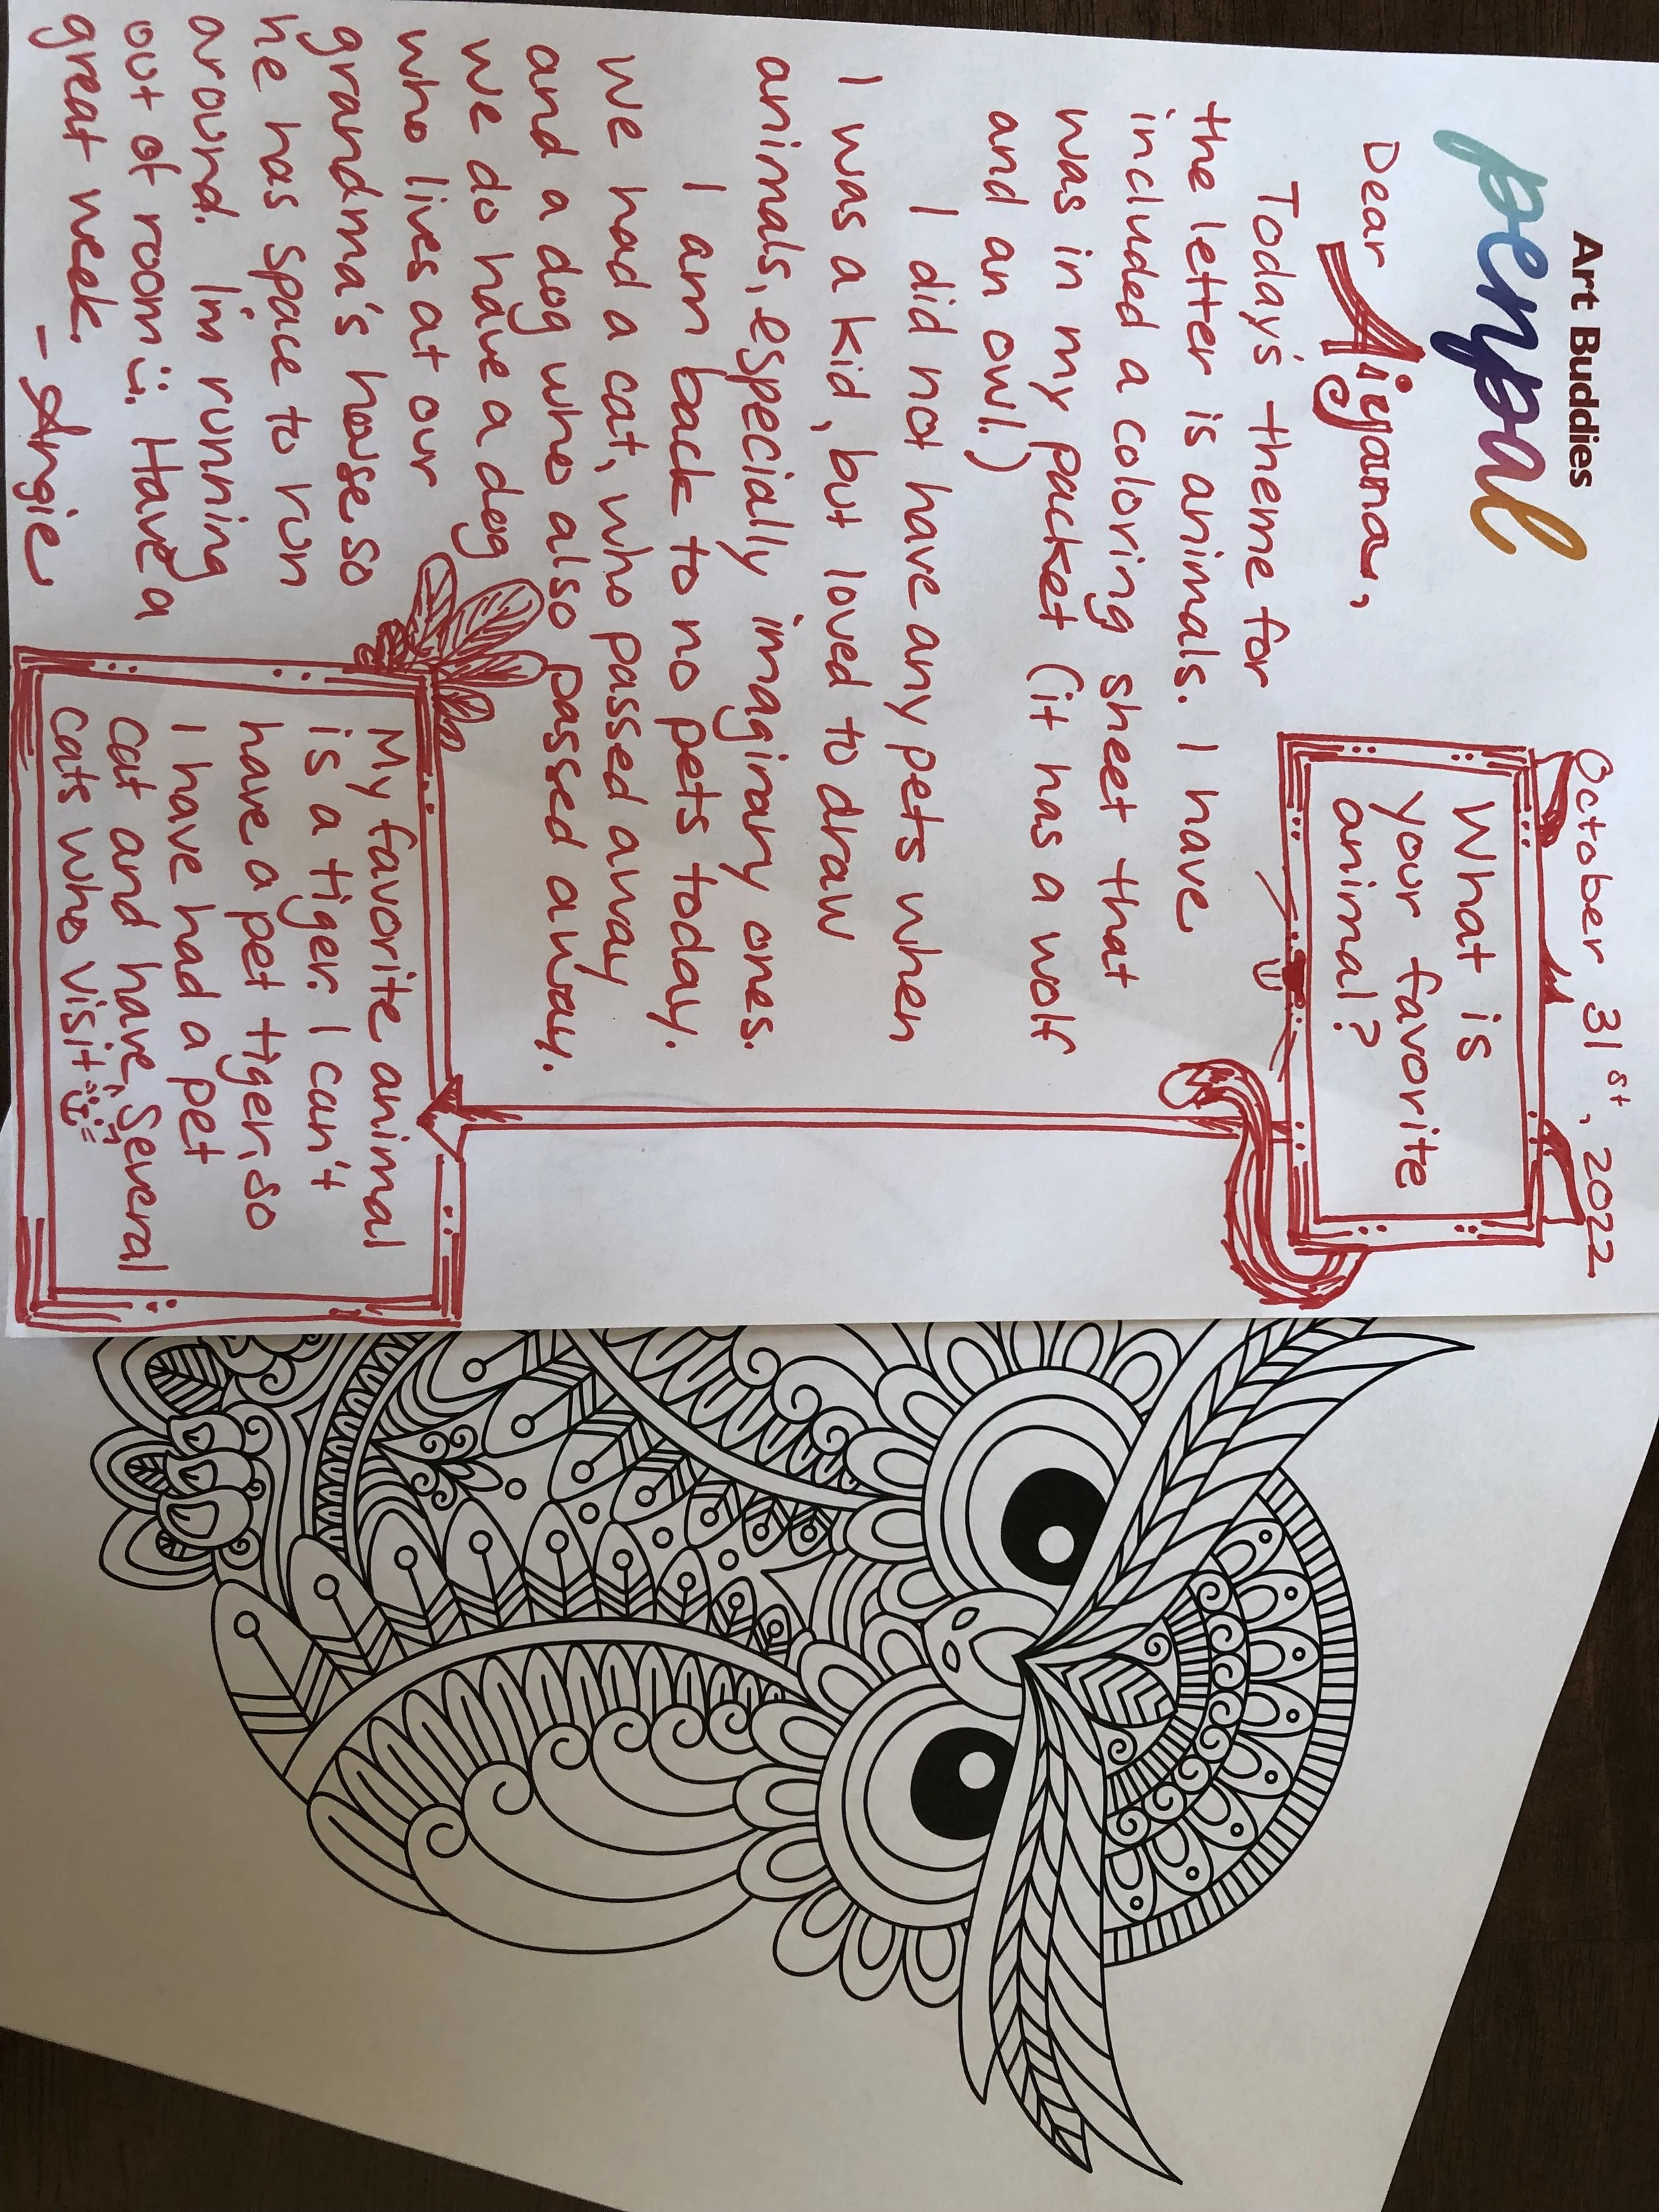 Art Buddies
penpal
October 31st, 2022
Dear Aiyana,
What is
your favorite
animal?
Today's theme for
the letter is animals. I have
included a coloring sheet that
was in my packet (it has a wolf
and an owl.)
I did not have any pets when
I was a kid, but loved to draw
animals, especially imaginary ones.
I am back to no pets today.
We had a cat, who passed away
and a dog who also passed away.
we do have a dog
who lives at our
grandma's house so
he has space to run
around. I'm running
out of room :). Have a
great week.
- Angie
My favorite animal
is a tiger. I can't
have a pet tiger, so
I have had a pet
cat and have several
cats who visit